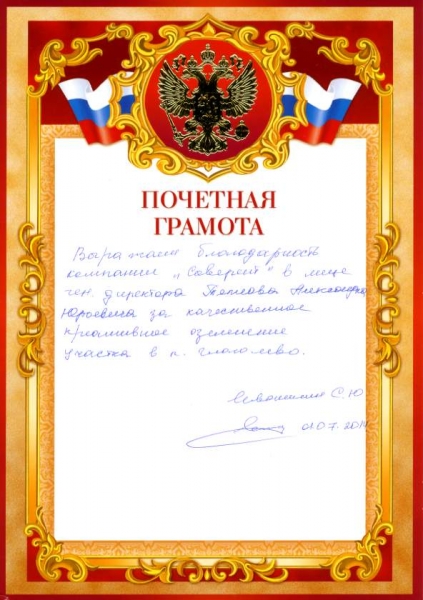 ПОЧЕТНАЯ
ГРАМОТА
Выражаем благодарность
компании „Соверен" в лице
ген. директора Александра
Юрьевича за качественное
креативное озеленение
участка в п. Глаголево.
С.Ю
07.201